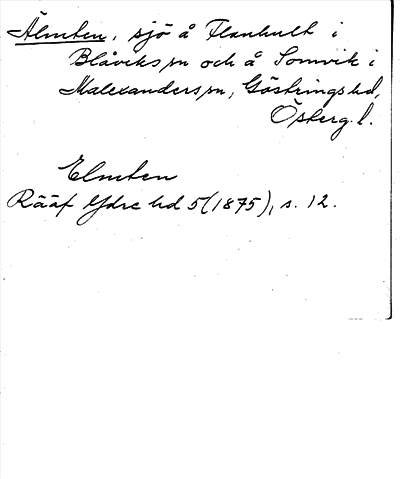 Älmten, sjö å Flanhult i
Blåviks sn och å Somvik i
Malexanders sn, Göstrings hd,
Östergl.
Elmten
Rääf Ydre hd 5 (1875), s. 12.